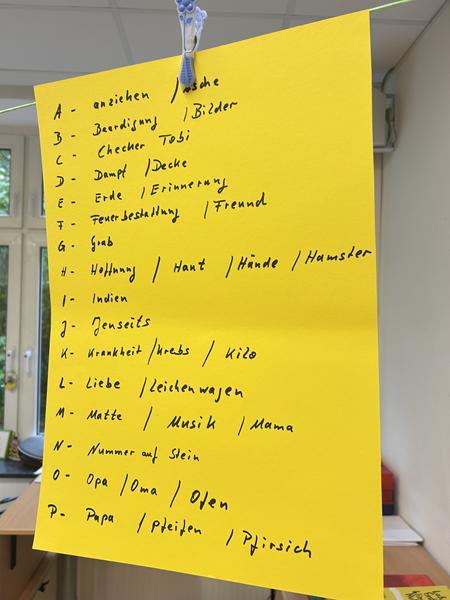 A - anziehen / Asche
B - Beerdigung / Bilder
C - Checker Tobi
D - Dampf / Decke
E - Erde / Erinnerung
F - Feuerbestattung / Freund
G - Grab
H - Hoffnung / Haut / Hände / Hamster
I - Indien
J - Jenseits
K - Krankheit / Krebs / Kilo
L - Liebe / Leichenwagen
M - Matte / Musik / Mama
N - Nummer auf Stein
O - Opa / Oma / Ofen
P - Papa / Pfeifen / Pfirsich